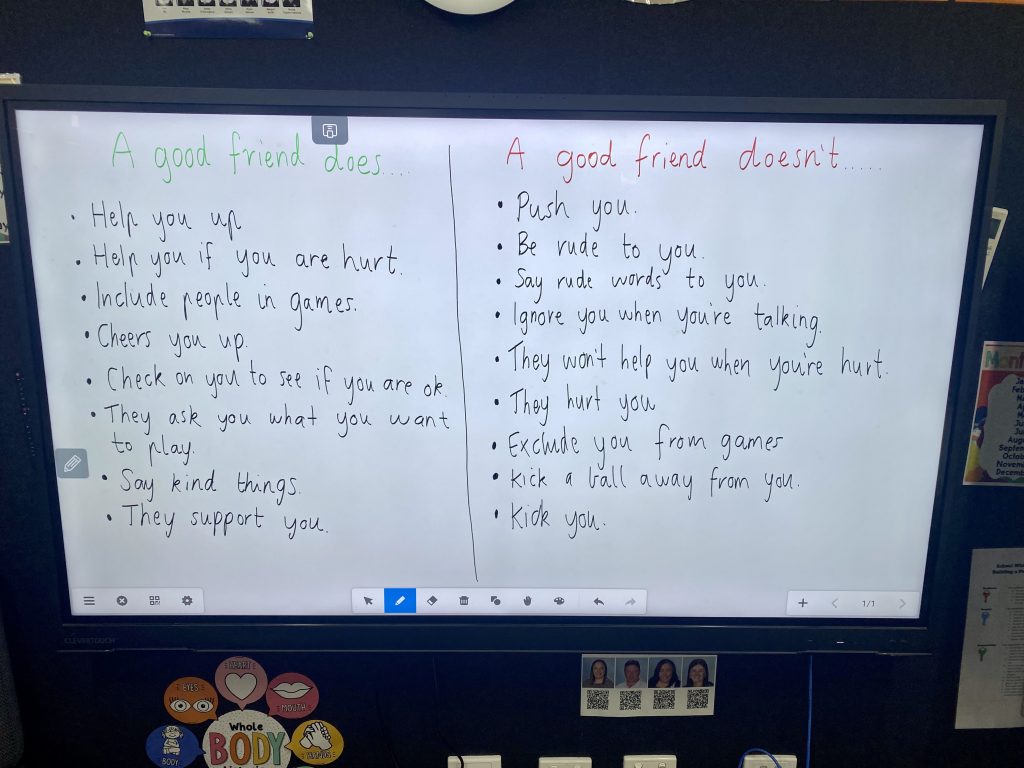 A good friend does....
• Help you up
• Help you if you are hurt.
• Include people in games.
• Cheers you up.
• Check on you to see if you are ok.
• They ask you what you want
to play.
• Say kind things.
• They support you.
A good friend doesn't.....
• Push you.
• Be rude to you.
• Say rude words to you.
• Ignore you when you're talking.
• They won't help you when you're hurt.
• They hurt you
• Exclude you from games
• Kick a ball away from you.
• Kick you.
1/1
CLEVERTOUCH
HEART
EYES
MOUTH
Whole
BODY
BODY